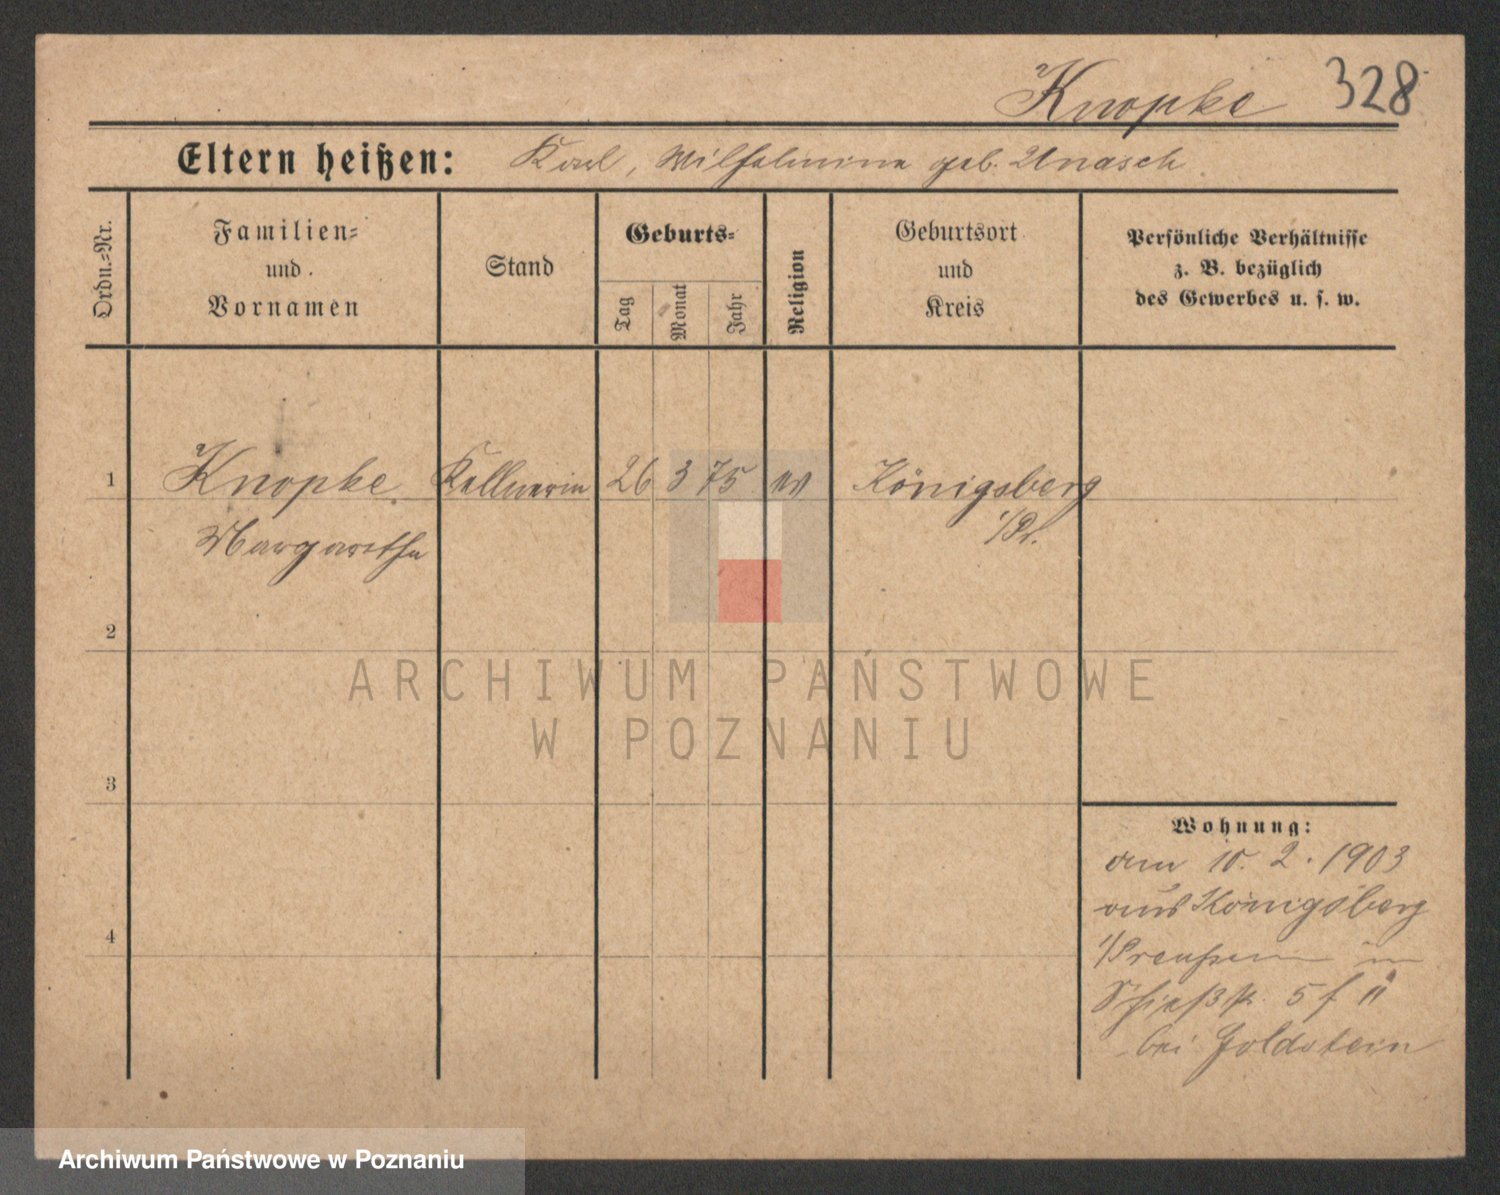 Knopke 328
Eltern heißen: Karl, Wilhelmine geb. Unasch
Ordn.-Nr.
Familien-
und
Vornamen
Stand
Geburts-
Tag
Monat
Jahr
Religion
Geburtsort
und
Kreis
Persönliche Verhältnisse
z. B. bezüglich
des Gewerbes u. s. w.
1 Knopke Kellnerin 26 3 75 ev Königsberg
Margarethe i/Pr.
2
ARCHIWUM PAŃSTWOWE
W POZNANIU
3
Wohnung:
am 10. 2. 1903
aus Königsberg
i/Preußen in
Schießstr. 5
4
bei Goldstein
Archiwum Państwowe w Poznaniu